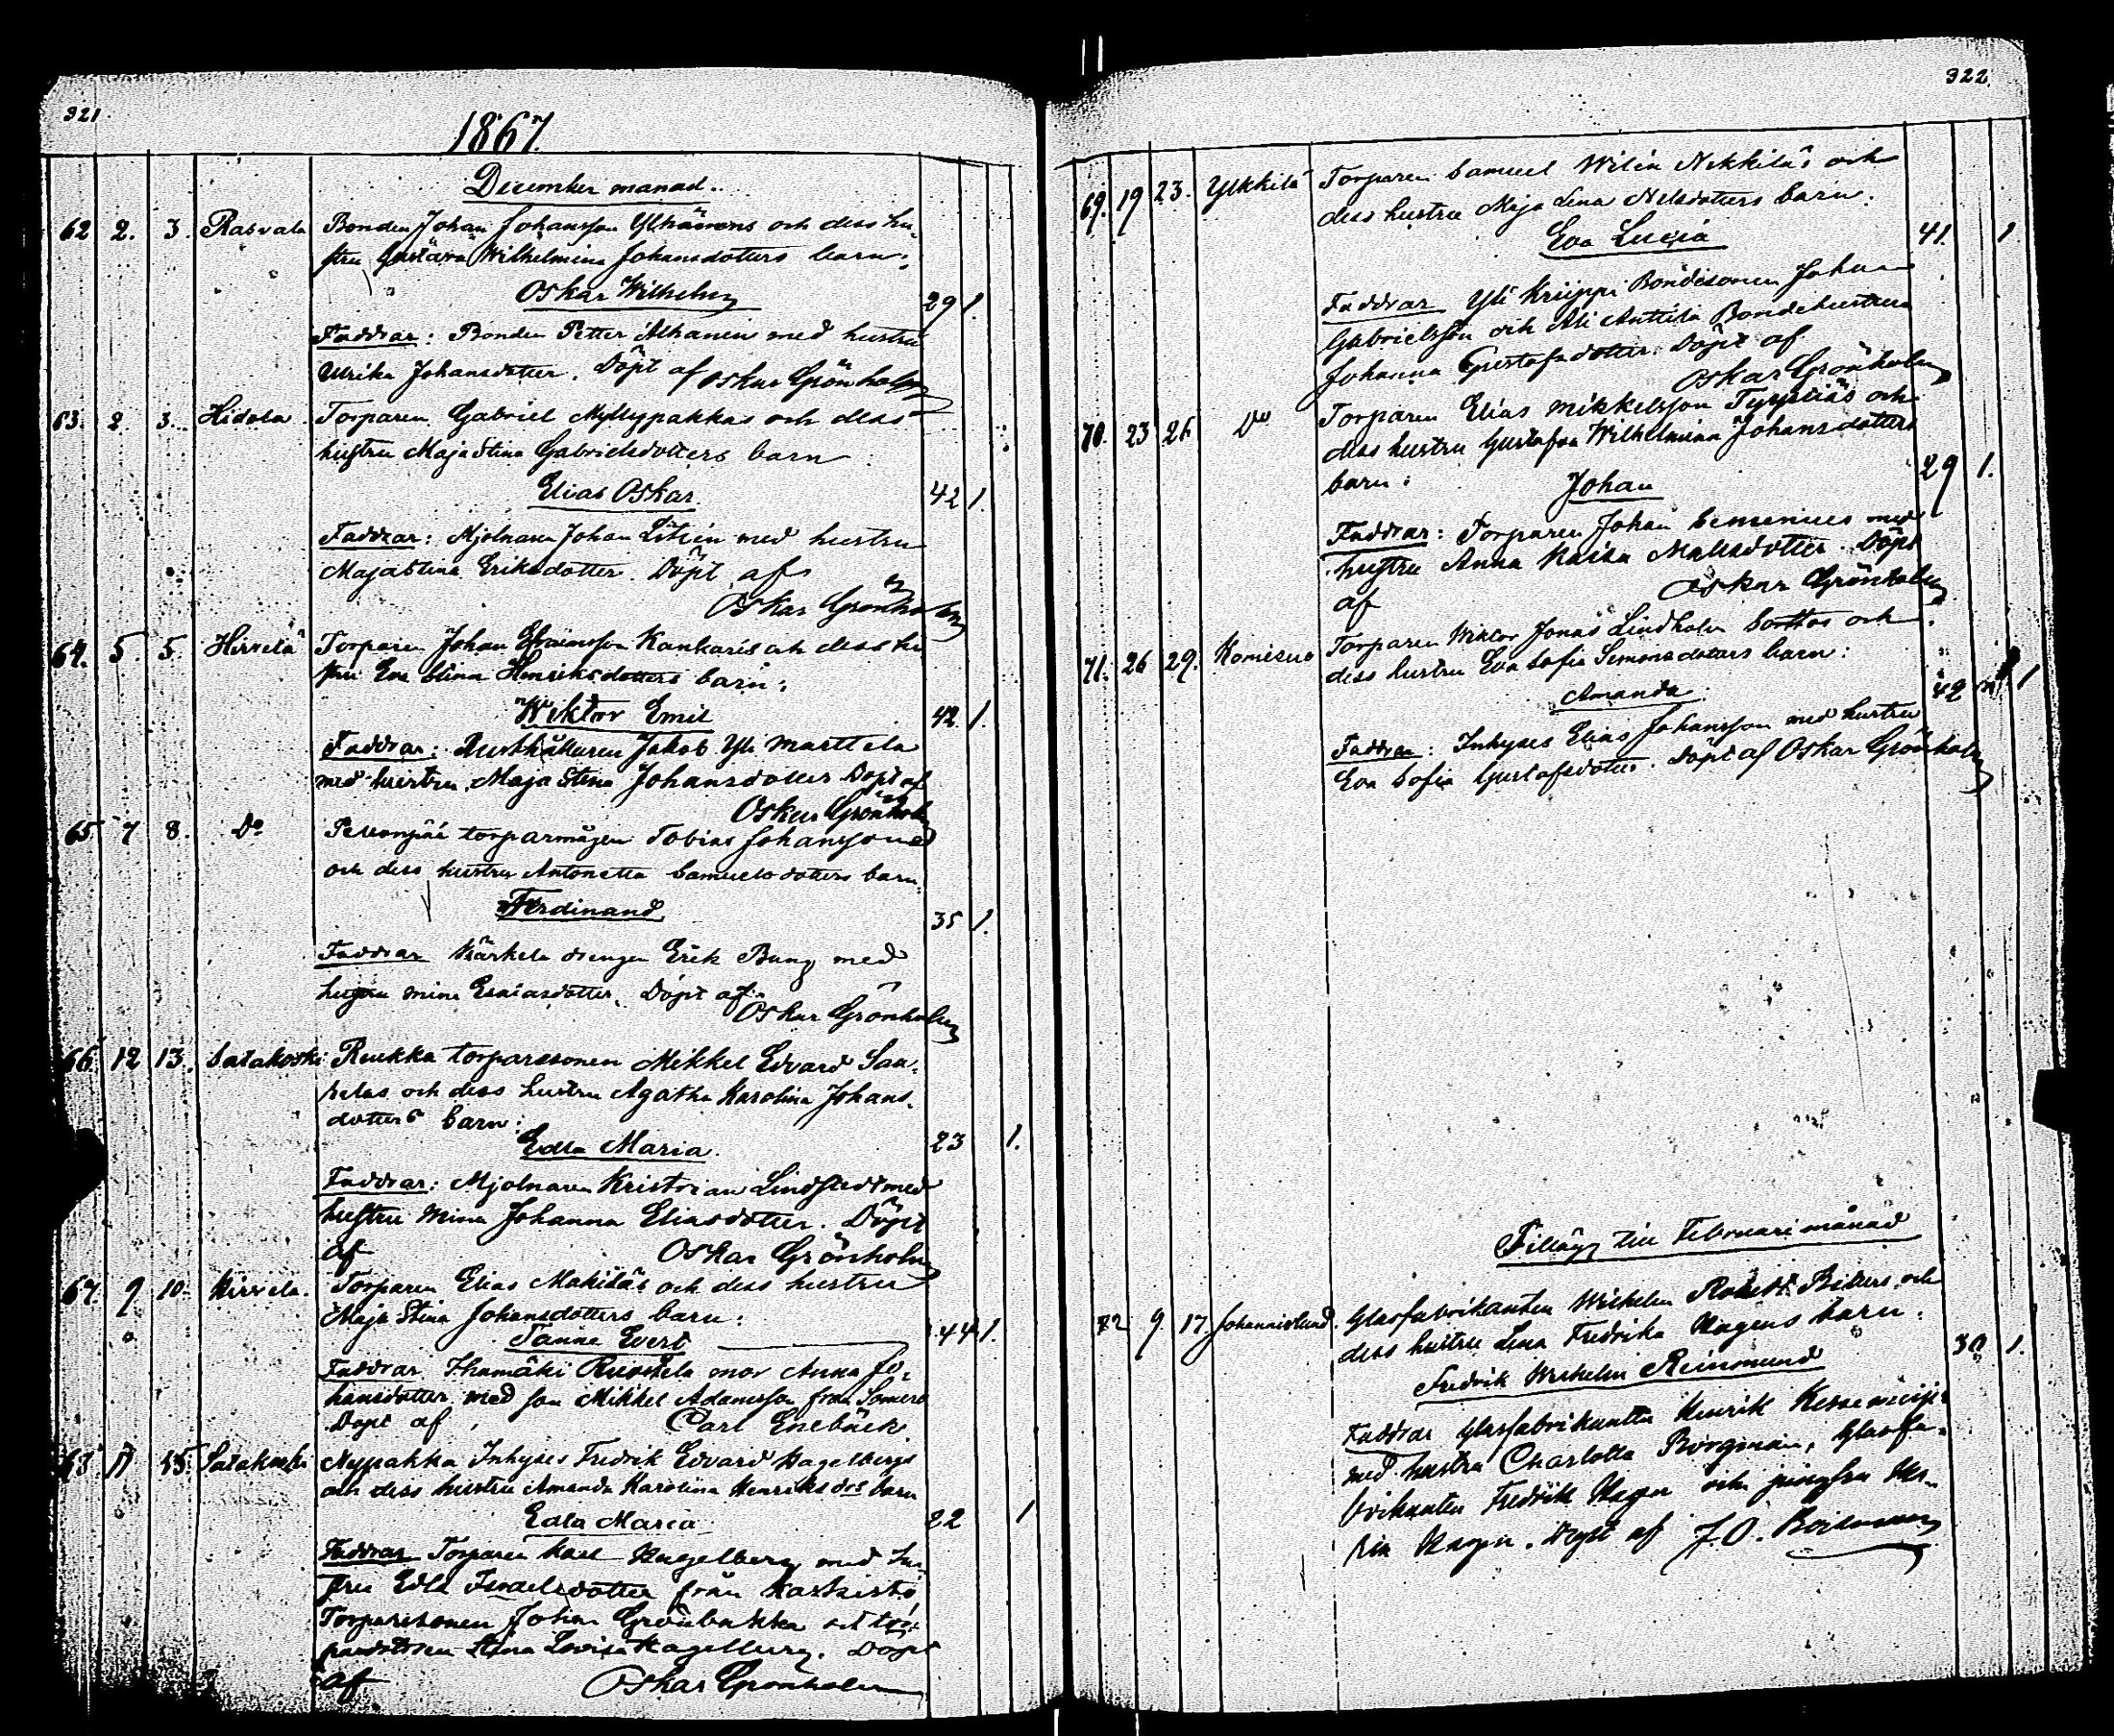 321
1867
December månad.
62 2. 3. Rasvala Bonden Johan Johansson Ylhäinens och dess hu-
stru Gustava Wilhelmina Johansdotters barn:
Oskar Wilhelm 29 1.
Faddrar: Bonden Petter Alhanen med hustru
Ulrika Johansdotter. Döpt af Oskar Grönholm
63. 2. 3. Hidola Torparen Gabriel Myllypakkas och dess
hustru Maja Stina Gabrielsdotters barn
Elias Oskar 42 1.
Faddrar: Mjolnaren Johan med hustru
Maja Stina Eriksdotter. Döpt af
Oskar Grönholm
64. 5. 5. Hirvelä Torparen Johan Efraimsson Kankaris och dess hu
stru Eva Stina Henriksdotters barn:
Wiktor Emil 42. 1.
Faddrar: Rusthållaren Jakob Yli Marttela
med hustru Maja Stina Johansdotter Döpt af
Oskar Grönholm
65 7 8. Do torparmågen Tobias Johanssons
och dess hustru Antonetta Samuelsdotters barn:
Ferdinand 35 1.
Faddrar Kärkelä drengen Erik Bung med
hustru Mina Esaiasdotter. Döpt af
Oskar Grönholm
66. 12 13. Satakoski Ruukka torparesonen Mikkel Edvard Saa-
relas och dess hustru Agatha Karolina Johans-
dotters barn:
Edla Maria 23 1.
Faddrar: Mjolnaren Kristian Lindstedt med
hustru Mina Johanna Eliasdotter. Döpt
af Oskar Grönholm
67. 9 10. Hirvela. Torparen Elias Makiläs och dess hustru
Maja Stina Johansdotters barn:
Janne Evert 44 1.
Faddrar Ihamäki mor Anna Jo-
hansdotter med son Mikkel Adamsson från Somero
Döpt af Carl Enebäck
Satakoski Nypakka Inhyses Fredrik Edvard Hagelbergs
och dess hustru Amanda Karolina Henriksdrs barn
Edla Maria 22 1
Faddrar Torparen Karl Hagelberg med hu-
stru Edla Israelsdotter från
Torparesonen Johan Grönbakka och
Stina Lovisa Hagelberg. Döpt
af Oskar Grönholm
322
69. 19 23. Ylkkilä Torparen Samuel Wilén Nikkiläs och
dess hustru Maja Lena Nilsdotters barn:
Eva Lucia 41. 1
Faddrar Yli Knijppi Bondesonen Johan
Gabrielsson och Ali Anttila Bondehustrun
Johanna Gustafsdotter. Döpt af
Oskar Grönholm
70. 23 26 Do Torparen Elias Mikkelsson och
dess hustru Gustafva Wilhelmina Johansdotters
barn: Johan 29 1.
Faddrar: Torparen Johan med
hustru Anna Kaisa Mattsdotter. Döpt
af Oskar Grönholm
71. 26 29. Komisuo Torparen Wiktor Jonas Lindholm och
dess hustru Eva Sofia Simonsdotters barn:
Amanda 42 1
Faddrar: Inhyses Elias Johansson med hustru
Eva Sofia Gustafsdotter. Döpt af Oskar Grönholm
Tillägg till Februari månad
72 9. 17. Johannislund. Glasfabrikanten Wilhelm Robert och
dess hustru Lina Fredrika Hagens barn:
Fredrik Wilhelm Reinmund 30 1.
Faddrar Glasfabrikanten Henrik
med hustru Charlotta Borgman, Glasfa-
brikanten Fredrik Hagen och jungfru
Hagen. Döpt af J. O.